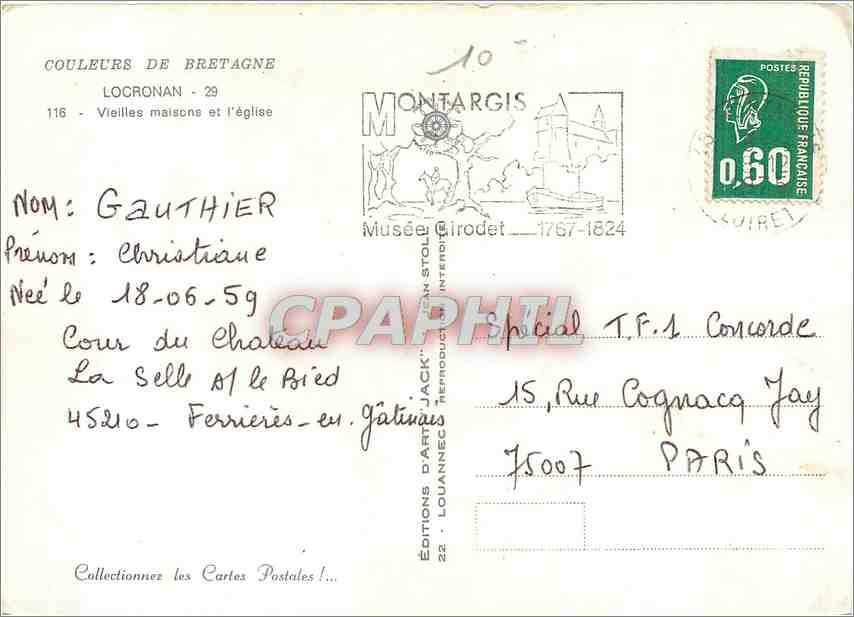 COULEURS DE BRETAGNE
LOCRONAN - 29
116 - Vieilles maisons et l'église
10
MONTARGIS
Musée Girodet 1767-1824
POSTES
REPUBLIQUE FRANÇAISE
0,60
LOIRET
NOM: GAUTHIER
Prénom: Christiane
Neé le 18-06-59
Cour du Chateau
La Selle s/ le Bied
45210 - Ferrières-en-Gâtinais
CPAPHIL
ÉDITIONS D'ART "JACK" JEAN STOLL
22 - LOUANNEC REPRODUCTION INTERDITE
Spécial T.F.1 Concorde
15, Rue Cognacq Jay
75007 PARIS
Collectionnez les Cartes Postales !...